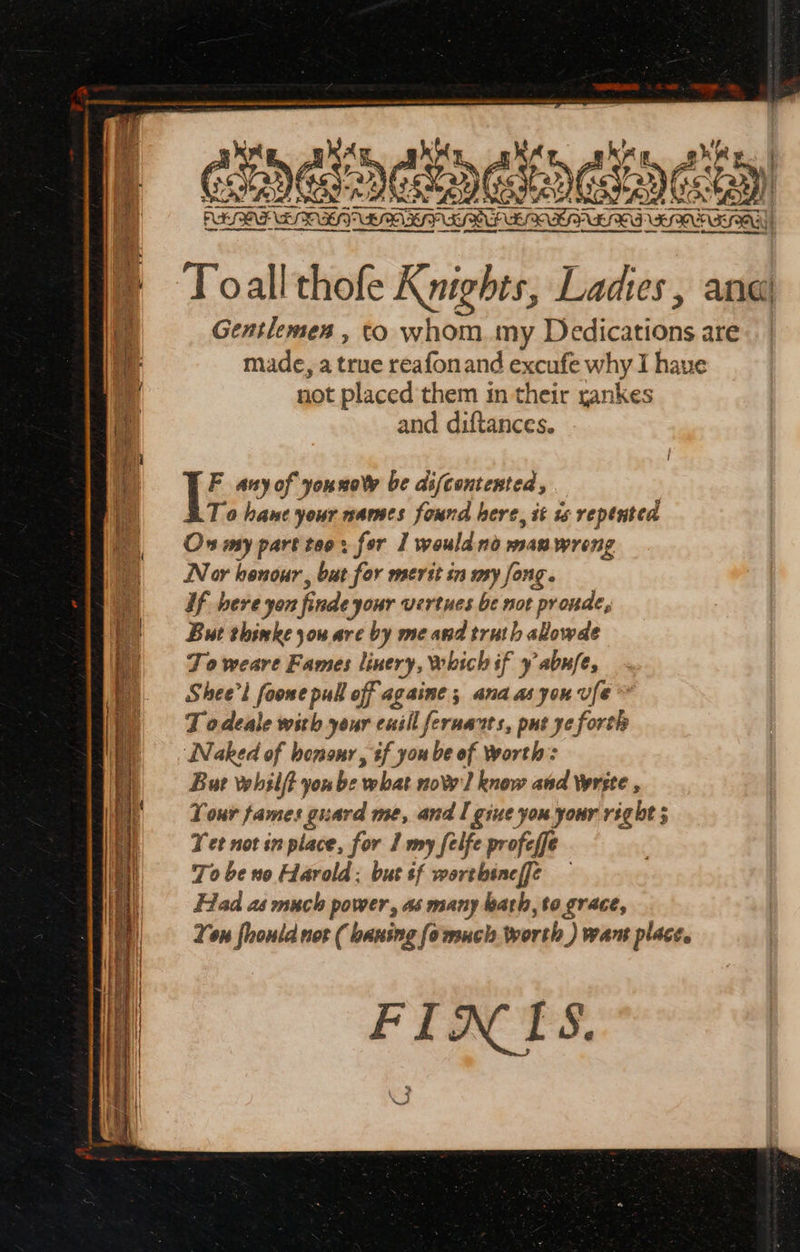 To all thoſe Knights, Ladies, and
Gentlemen, to whom my Dedications are
made, a true reaſon and excuſe why I haue
not placed them in their rankes
and diſtances.
IF any of you now be diſcontented,
To haue your names found here, it is repented
On my part too: for I would no man wrong
Nor honour, but for merit in my ſong.
If here you finde your vertues be not proude,
But thinke you are by me and truth allowde
To weare Fames liuery, which if y'abuſe,
Shee'l ſoone pull off againe; and as you vſe
To deale with your euill ſeruants, put ye forth
Naked of honour, if you be of worth:
But whilſt you be what now I know and write,
Your fames guard me, and I giue you your right;
Yet not in place, for I my ſelfe profeſſe
To be no Harold: but if worthineſſe
Had as much power, as many hath, to grace,
You ſhould not (hauing ſo much worth) want place.
FINIS.